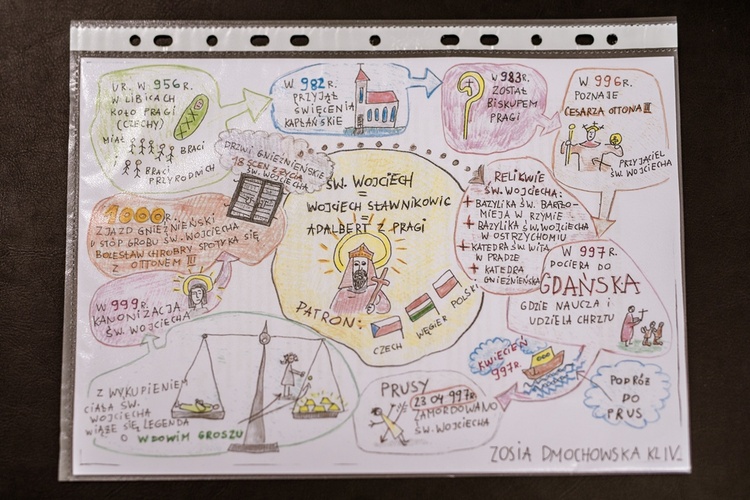 UR. W 956R.
W LIBICACH
KOŁO PRAGI
(CZECHY)
MIAŁ
BRACI
I
BRACI
PRZYRODNICH
W 982R.
PRZYJĄŁ
ŚWIĘCENIA
KAPŁAŃSKIE
W 983R.
ZOSTAŁ
BISKUPEM
PRAGI
W 996R.
POZNAJE
CESARZA OTTONA III
PRZYJACIEL
ŚW. WOJCIECHA
W 997R.
DOCIERA DO
GDAŃSKA
GDZIE NAUCZA I
UDZIELA CHRZTU
PODRÓŻ
DO
PRUS
KWIECIEŃ
997R.
PRUSY
23 04 997R.
ZAMORDOWANO
ŚW. WOJCIECHA
Z WYKUPIENIEM
CIAŁA ŚW.
WOJCIECHA
WIĄŻE SIĘ LEGENDA
O WDOWIM GROSZU
W 999R.
KANONIZACJA
ŚW. WOJCIECHA
1000R.
ZJAZD GNIEŹNIEŃSKI
U STÓP GROBU ŚW. WOJCIECHA
BOLESŁAW CHROBRY SPOTYKA SIĘ
Z OTTONEM III
DRZWI GNIEŹNIEŃSKIE
18 SCEN Z ŻYCIA
ŚW. WOJCIECHA
ŚW. WOJCIECH
=
WOJCIECH SŁAWNIKOWIC
=
ADALBERT Z PRAGI
PATRON:
CZECH
WĘGIER
POLSKI
RELIKWIE
ŚW. WOJCIECHA:
+ BAZYLIKA ŚW. BARTŁO-
MIEJA W RZYMIE
+ BAZYLIKA ŚW. WOJCIECHA
W OSTRZYCHOMIU
+ KATEDRA ŚW. WITA
W PRADZE
+ KATEDRA
GNIEŹNIEŃSKA
ZOSIA DMOCHOWSKA KL IV